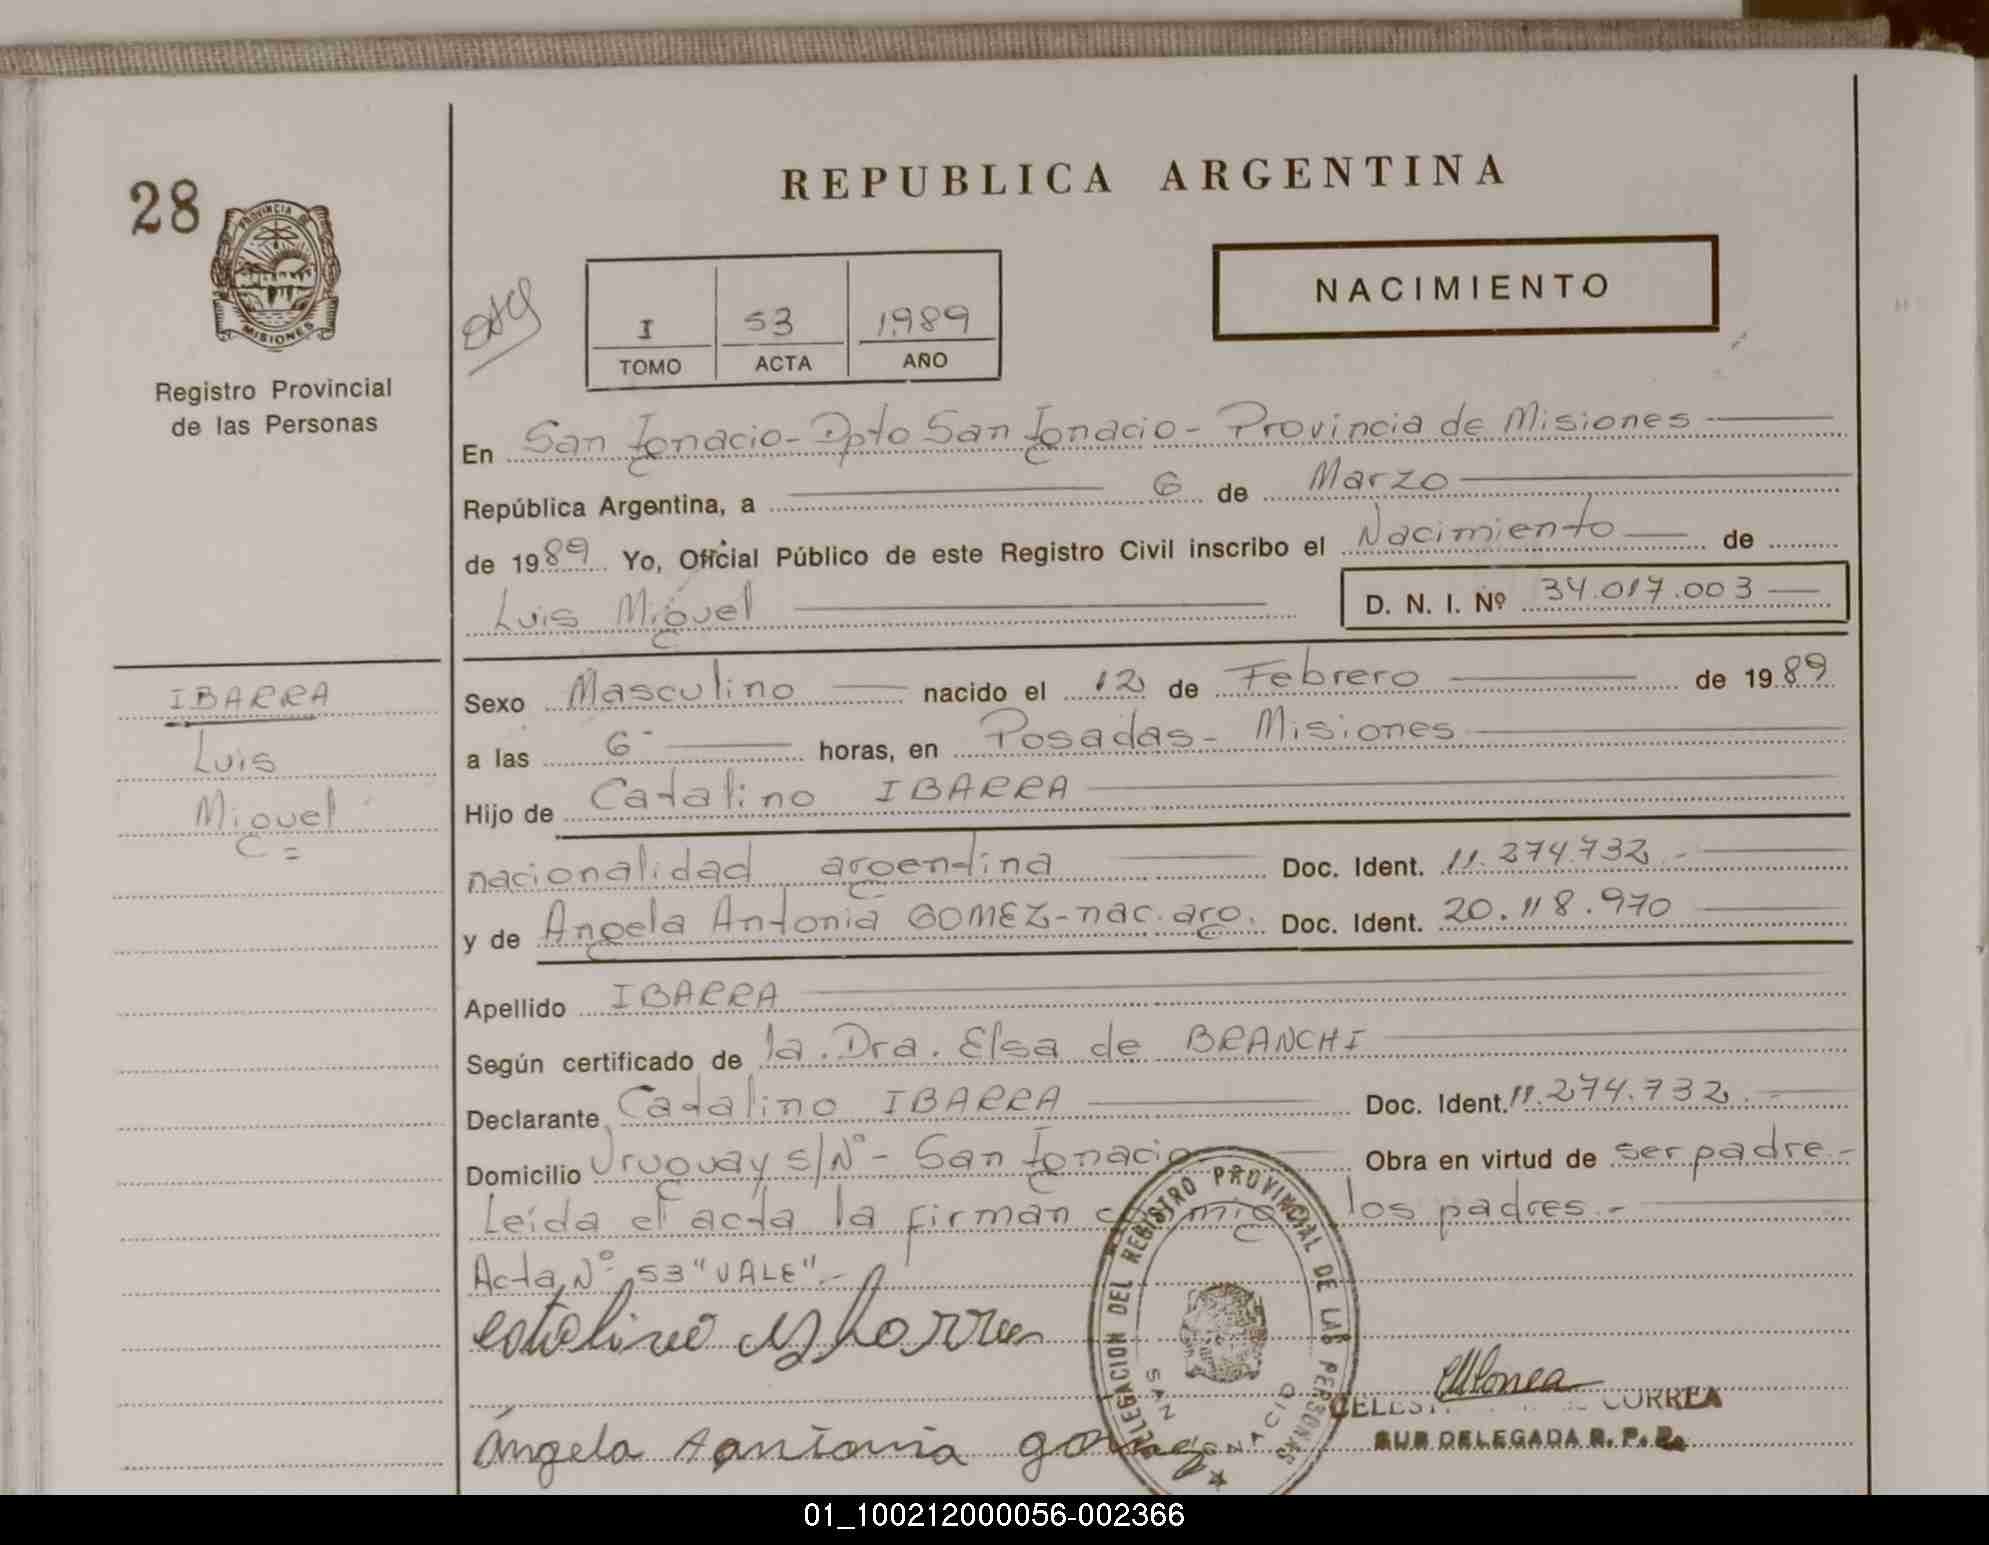 28
PROVINCIA DE
MISIONES
Registro Provincial
de las Personas
REPUBLICA ARGENTINA
NACIMIENTO
I 53 1989
TOMO ACTA AÑO
En San Ignacio - Dpto San Ignacio - Provincia de Misiones
República Argentina, a 6 de Marzo
de 1989 Yo, Oficial Público de este Registro Civil inscribo el Nacimiento de
Luis Miguel D. N. I. Nº 34.017.003
IBARRA
Luis
Miguel
Sexo Masculino nacido el 12 de Febrero de 1989
a las 6 horas, en Posadas - Misiones
Hijo de Catalino IBARRA
nacionalidad argentina Doc. Ident. 11.274.732.-
y de Angela Antonia GOMEZ - nac. arg. Doc. Ident. 20.118.970
Apellido IBARRA
Según certificado de la Dra. Elsa de BRANCHI
Declarante Catalino IBARRA Doc. Ident. 11.274.732.-
Domicilio Uruguay s/Nº - San Ignacio Obra en virtud de ser padre.-
Leída el acta la firman conmigo los padres.-
Acta Nº 53 "VALE".-
DELEGACION DEL REGISTRO PROVINCIAL DE LAS PERSONAS
SAN IGNACIO
Angela Antonia gomez
CORREA
SUB DELEGADA R. P. P.
01_100212000056-002366